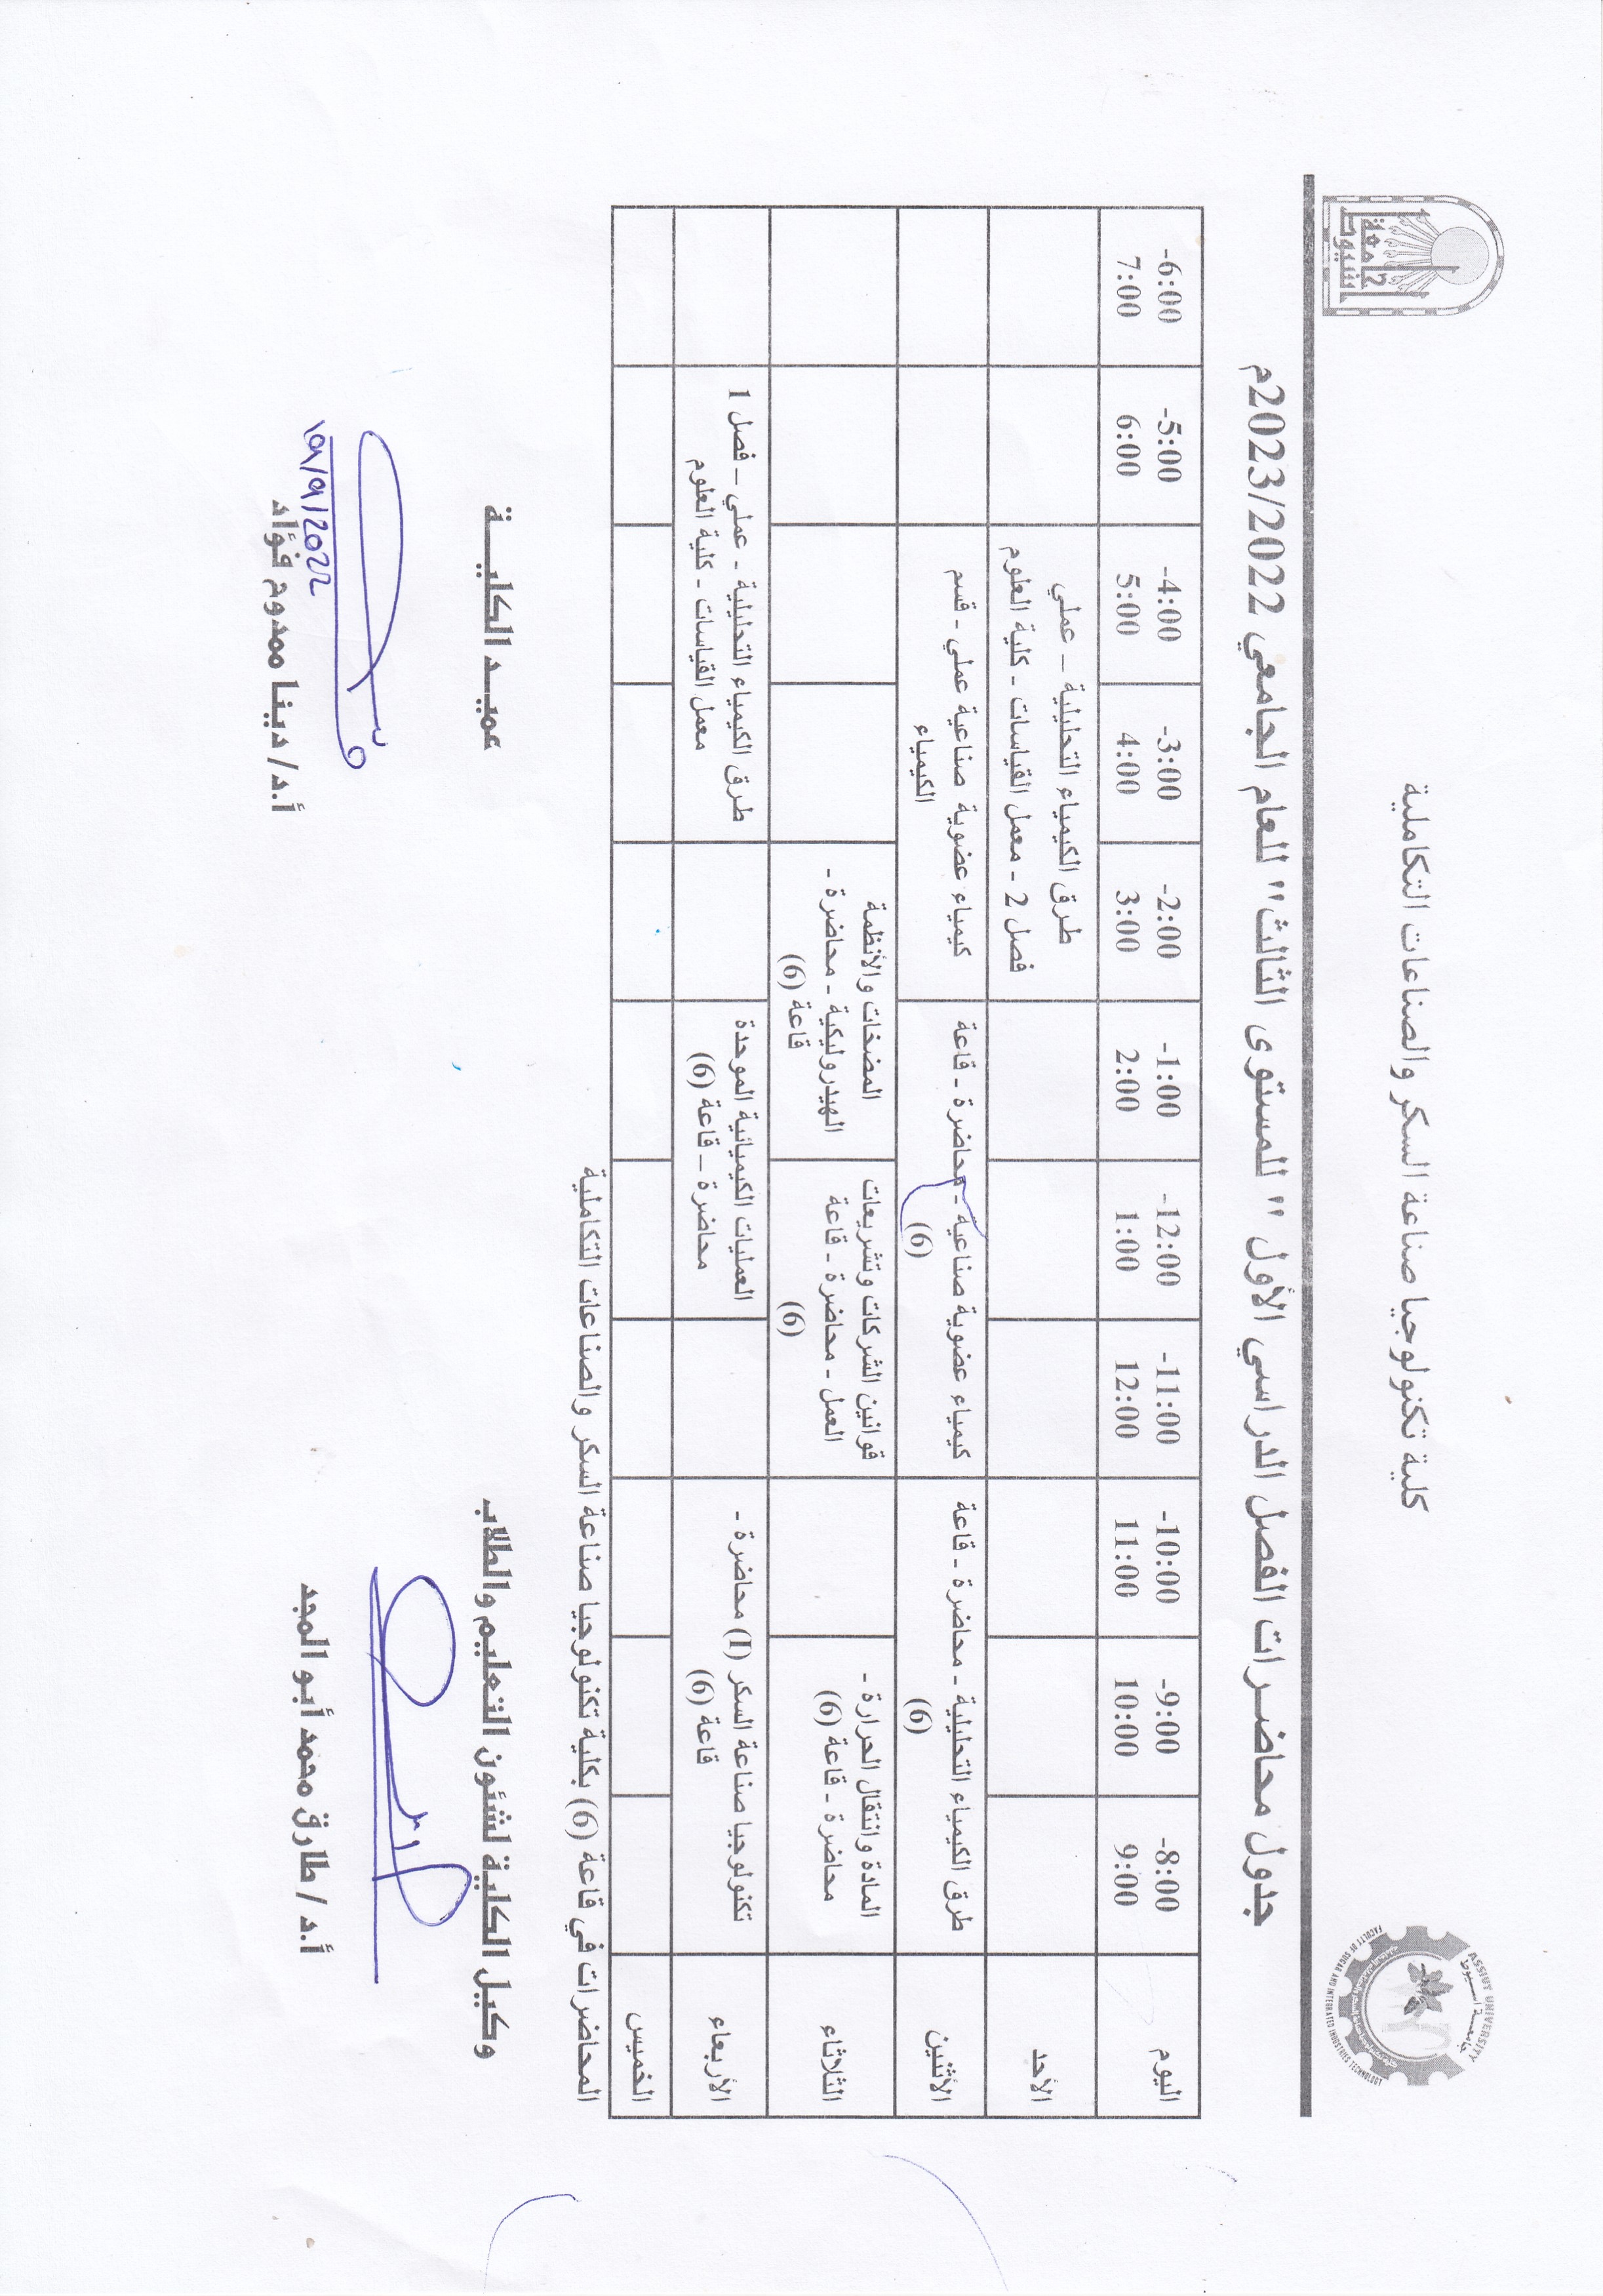 جامعة
أسيوط
كلية تكنولوجيا صناعة السكر والصناعات التكاملية
ASSIUT UNIVERSITY
جامعة أسيوط
FACULTY OF SUGAR AND INTEGRATED INDUSTRIES TECHNOLOGY
جدول محاضرات الفصل الدراسي الأول " للمستوى الثالث" للعام الجامعي 2023/2022م
اليوم
8:00-
9:00
9:00-
10:00
10:00-
11:00
11:00-
12:00
12:00-
1:00
1:00-
2:00
2:00-
3:00
3:00-
4:00
4:00-
5:00
5:00-
6:00
6:00-
7:00
الأحد
طرق الكيمياء التحليلية – عملي
فصل 2 - معمل القياسات - كلية العلوم
الأثنين
طرق الكيمياء التحليلية - محاضرة - قاعة
(6)
كيمياء عضوية صناعية - محاضرة - قاعة
(6)
كيمياء عضوية صناعية عملي - قسم
الكيمياء
الثلاثاء
المادة وانتقال الحرارة -
محاضرة - قاعة (6)
قوانين الشركات وتشريعات
العمل - محاضرة - قاعة
(6)
المضخات والأنظمة
الهيدروليكية - محاضرة -
قاعة (6)
الأربعاء
تكنولوجيا صناعة السكر (I) محاضرة -
قاعة (6)
العمليات الكيميائية الموحدة
محاضرة – قاعة (6)
طرق الكيمياء التحليلية - عملي – فصل 1
معمل القياسات - كلية العلوم
الخميس
المحاضرات في قاعة (6) بكلية تكنولوجيا صناعة السكر والصناعات التكاملية
وكيل الكلية لشئون التعليم والطلاب
عميد الكلية
أ.د / طارق محمد أبو المجد
أ.د/ دينا ممدوح فؤاد